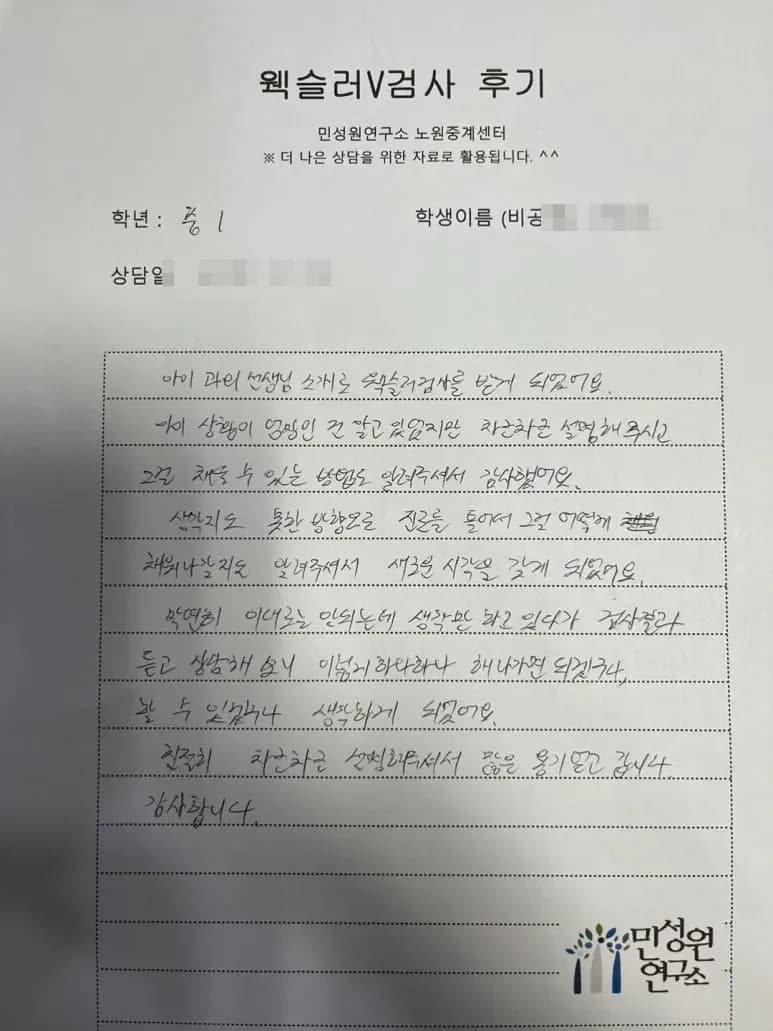 웩슬러V검사 후기
민성원연구소 노원중계센터
※ 더 나은 상담을 위한 자료로 활용됩니다. ^^
학년 : 중 1
학생이름 (비공
상담일
아이 과외 선생님 소개로 웩슬러검사를 받게 되었어요.
아이 상황이 엉망인 건 알고 있었지만 차근차근 설명해 주시고
그걸 채울 수 있는 방법도 알려주셔서 감사했어요.
생각지도 못한 방향으로 진로를 틀어서 그걸 어떻게
채워나갈지도 알려주셔서 새로운 시각을 갖게 되었어요.
막연히 이대로는 안되는데 생각만 하고 있다가 검사결과
듣고 상담해 보니 이렇게 하나하나 해나가면 되겠구나,
할 수 있겠구나 생각하게 되었어요.
친절히 차근차근 설명해주셔서 많은 용기 얻고 갑니다.
감사합니다.
민성원
연구소